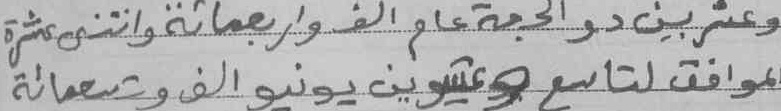 وعشرين ذو الحجة عام الف واربعمائة واثنتى عشرة
الموافق لتاسع وعشرين يونيو الف وتسعمائة